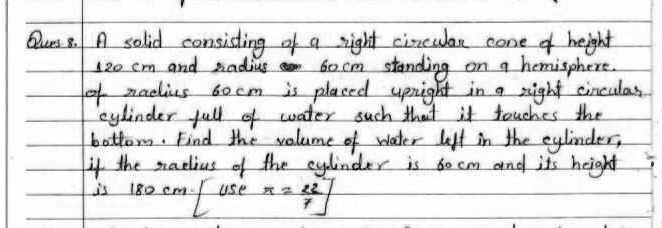 Ques 8. A solid consisting of a right circular cone of height
120 cm and radius 60 cm standing on a hemisphere.
of radius 60 cm is placed upright in a right circular
cylinder full of water such that it touches the
bottom. Find the volume of water left in the cylinder,
if the radius of the cylinder is 60 cm and its height
is 180 cm. [ use π = 22/7 ]